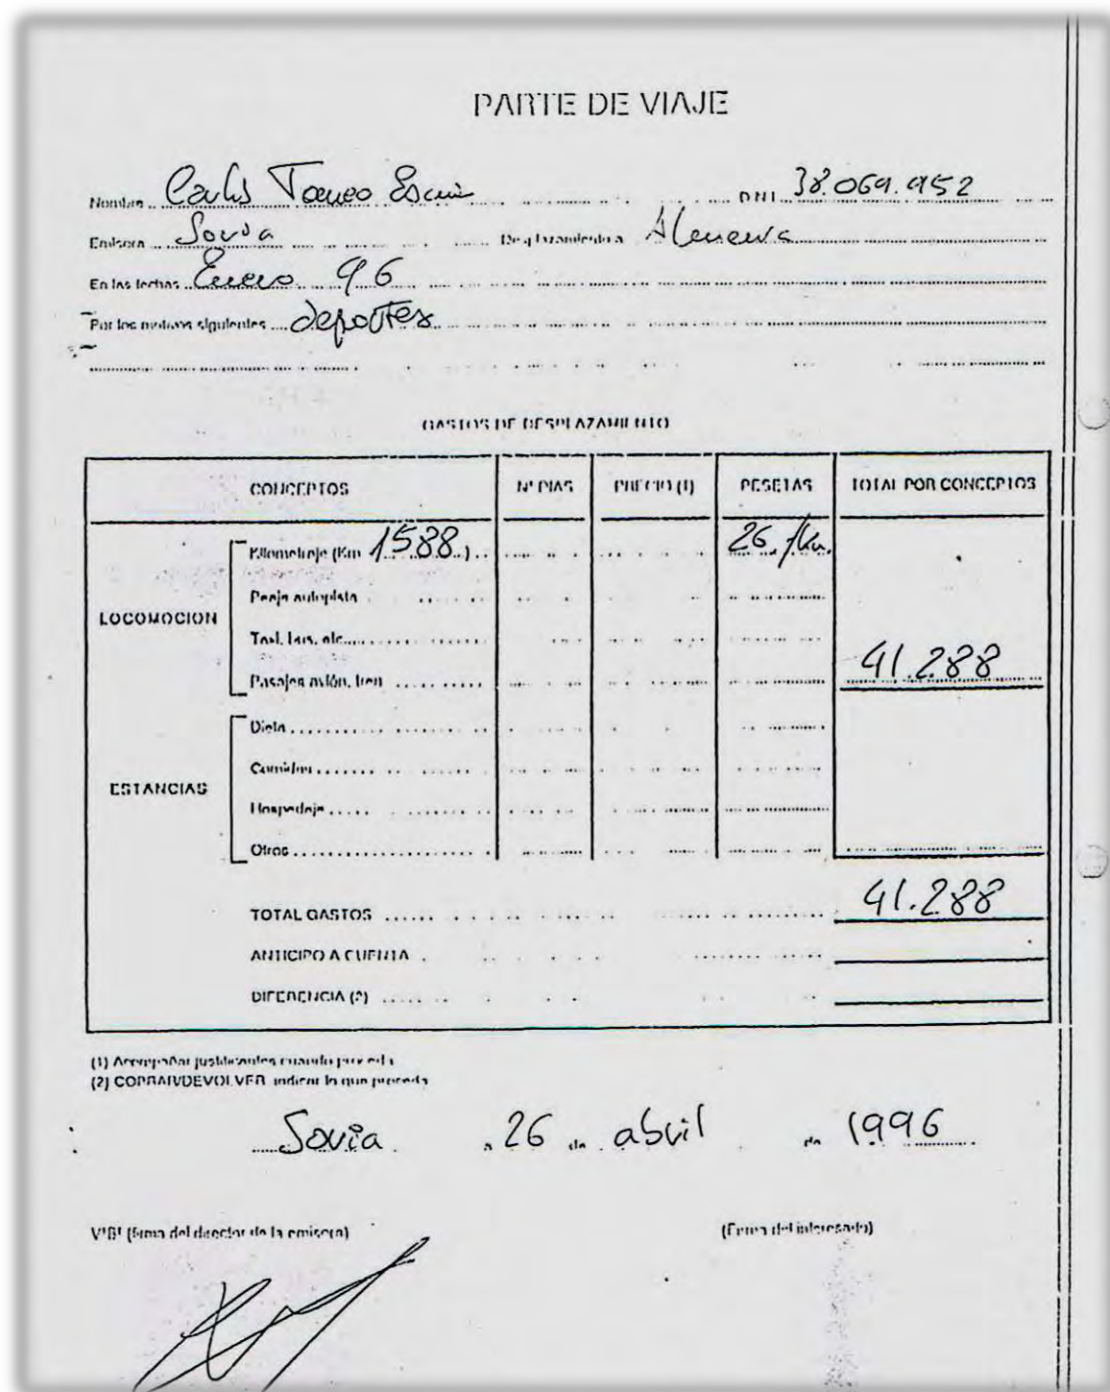 PARTE DE VIAJE
Nombre Carlos DNI 38.069.952
Emisora Soria Desplazamiento a
En las fechas Enero 96
Por los motivos siguientes deportes
GASTOS DE DESPLAZAMIENTO
CONCEPTOS Nº DIAS PRECIO (1) PESETAS TOTAL POR CONCEPTOS
LOCOMOCION
Kilometraje (Km 1588) 26 /Km.
Peaje autopista
Taxi, bus, etc.
Pasajes avión, tren 41.288
ESTANCIAS
Dieta
Comidas
Hospedaje
Otros
TOTAL GASTOS 41.288
ANTICIPO A CUENTA
DIFERENCIA (2)
(1) Acompañar justificantes cuando proceda
(2) COBRAR/DEVOLVER indicar lo que proceda
Soria a 26 de abril de 1996
VºBº (firma del director de la emisora) (Firma del interesado)